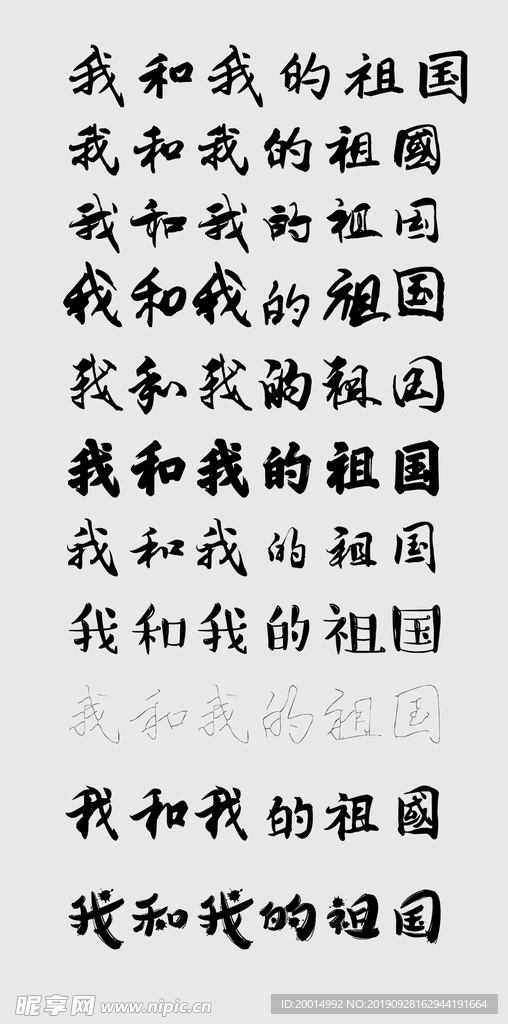 我和我的祖国
我和我的祖國
我和我的祖国
我和我的祖国
我和我的祖国
我和我的祖国
我和我的祖国
我和我的祖国
我和我的祖国
我和我的祖國
我和我的祖国
昵享网 www.nipic.cn
ID:20014992 NO:20190928162944191664